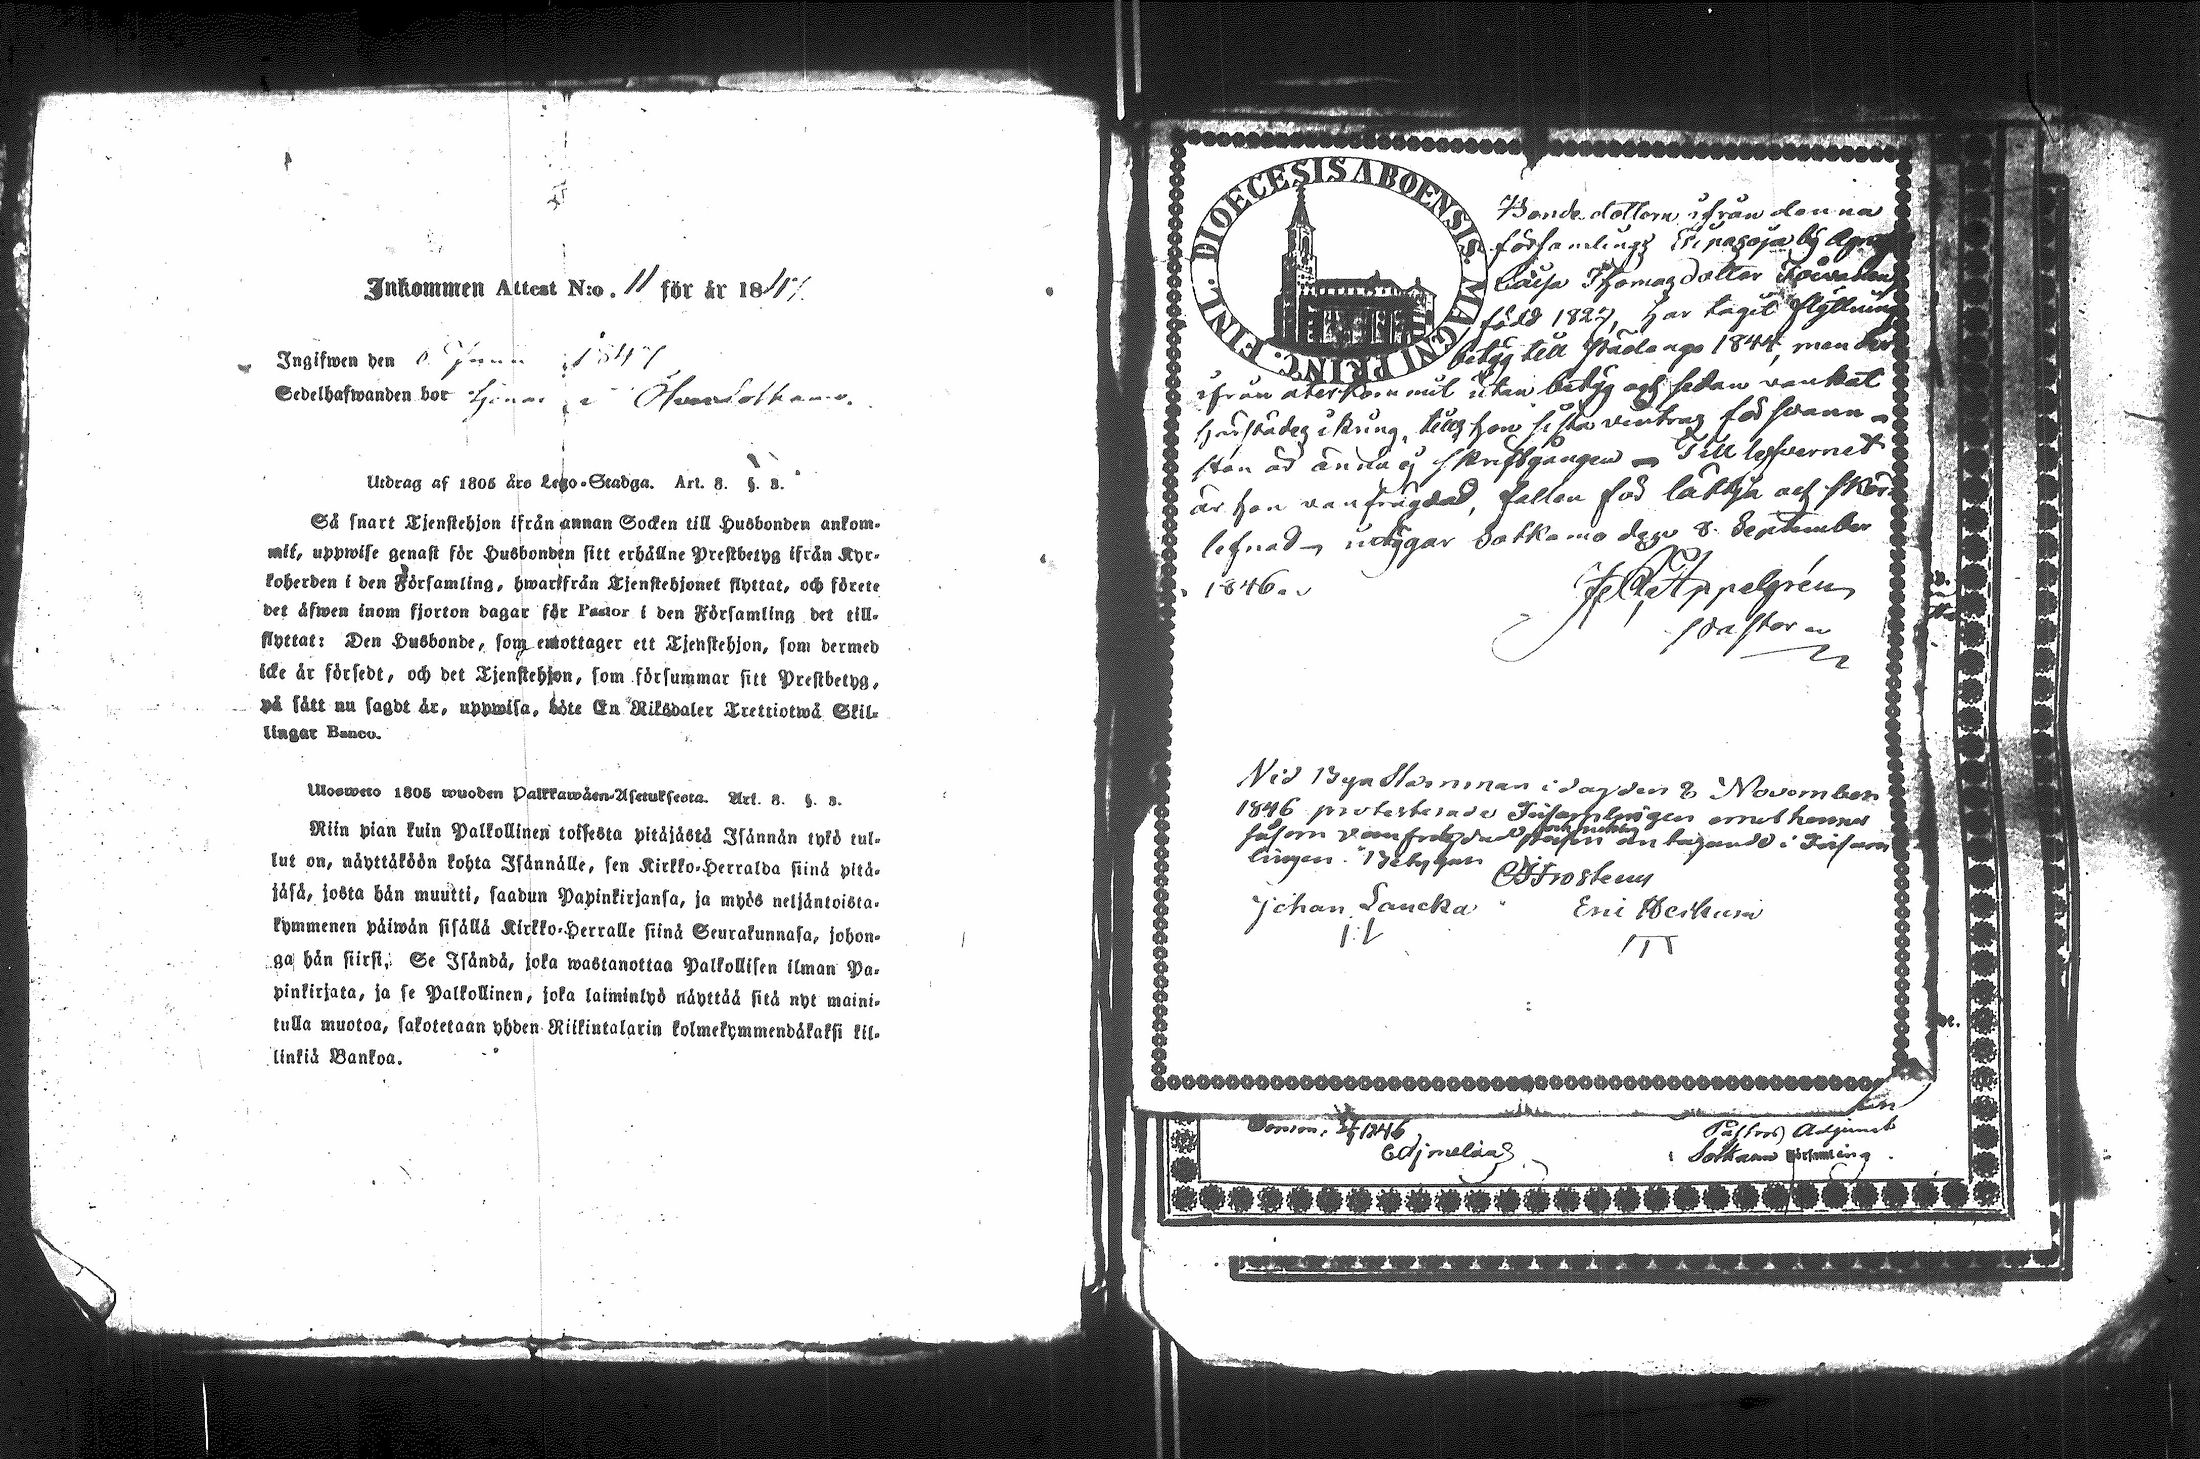 Inkommen Attest N:o. 11 för år 1847.
Ingifwen den 6 Junii 1847
Sedelhafwanden bor
Utdrag af 1805 års Lego-Stadga. Art. 8. §. 3.
Så snart Tjenstehjon ifrån annan Socken till Husbonden ankom-
mit, uppwise genast för Husbonden sitt erhållne Prestbetyg ifrån Kyr-
koherden i den Församling, hwarifrån Tjenstehjonet flyttat, och förete
det äfwen inom fjorton dagar för Pastor i den Församling det till-
flyttat: Den Husbonde, som emottager ett Tjenstehjon, som dermed
icke är försedt, och det Tjenstehjon, som försummar sitt Prestbetyg,
på sätt nu sagdt är, uppwisa, böte En Riksdaler Trettiotwå Skil-
lingar Banco.
Ulosweto 1805 wuoden Palkkawäen-Asetuksesta. Art. 8. §. 3.
Niin pian kuin Palkollinen toisesta pitäjästä Isännän tykö tul-
lut on, näyttäköön kohta Isännälle, sen Kirkko-Herralda siinä pitä-
jäsä, josta hän muutti, saadun Papinkirjansa, ja myös neljäntoista-
kymmenen päiwän sisällä Kirkko-Herralle siinä Seurakunnasa, johon-
ga hän siirsi. Se Isändä, joka wastanottaa Palkollisen ilman Pa-
pinkirjata, ja se Palkollinen, joka laiminlyö näyttää sitä nyt maini-
tulla muotoa, sakotetaan yhden Riikintalarin kolmekymmendäkaksi kil-
linkiä Bankoa.
DIOECESIS ABOENSIS. MAGNI PRINC. FINL.
Bonde dottern ifrån denna
församlings by
Caisa Thomasdotter
född 1827, har tagit flyttnings
betyg till 1844, men der
ifrån återkommit utan betyg och sedan vankat
härstädes ikring, tills hon sista vintras försvann
är ännu ej skriftgången Till lefvernet
är hon vanfrägdad, fallen för lättja och skör
lefnad, intygar Sotkamo den 8 September
1846.
Appelgrén
Pastor
Vid Byastämman i dag den 8 November
1846 protesterade Församlingen emot hennes
såsom vanfrägdad antagande i Försam
lingen. Betygar
Frosterus
Johan Laucka Eric Heikura
1846
Pastors Adjunct
Sotkamo Församling